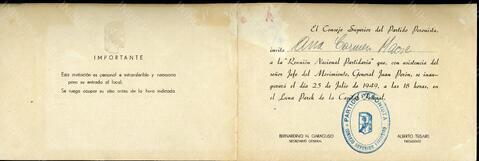 IMPORTANTE
Esta invitación es personal e intransferible y necesaria
para su entrada al local.
Se ruega ocupar su sitio antes de la hora indicada.
El Consejo Superior del Partido Peronista,
invita
Ana Carmen
a la "Reunión Nacional Partidaria" que, con asistencia del
señor Jefe del Movimiento, General Juan Perón, se inau-
gurará el día 25 de Julio de 1949, a las 18 horas, en
el Luna Park de la Capital Federal.
PARTIDO PERONISTA
CONSEJO SUPERIOR
BERNARDINO H. GARAGUSO
SECRETARIO GENERAL
ALBERTO TEISAIRE
PRESIDENTE